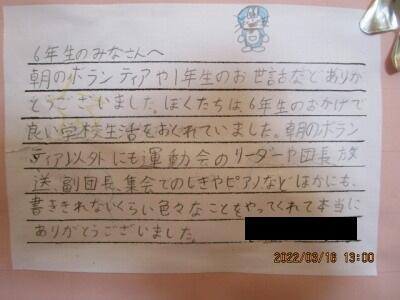 6年生のみなさんへ
朝のボランティアや1年生のお世話などありが
とうございました。ぼくたちは6年生のおかげで
良い学校生活をおくれていました。朝のボラン
ティア以外にも運動会のリーダーや団長、放
送、副団長、集会でのしきやピアノなどほかにも、
書ききれないくらい色々なことをやってくれて本当に
ありがとうございました。
2022/03/16 13:00